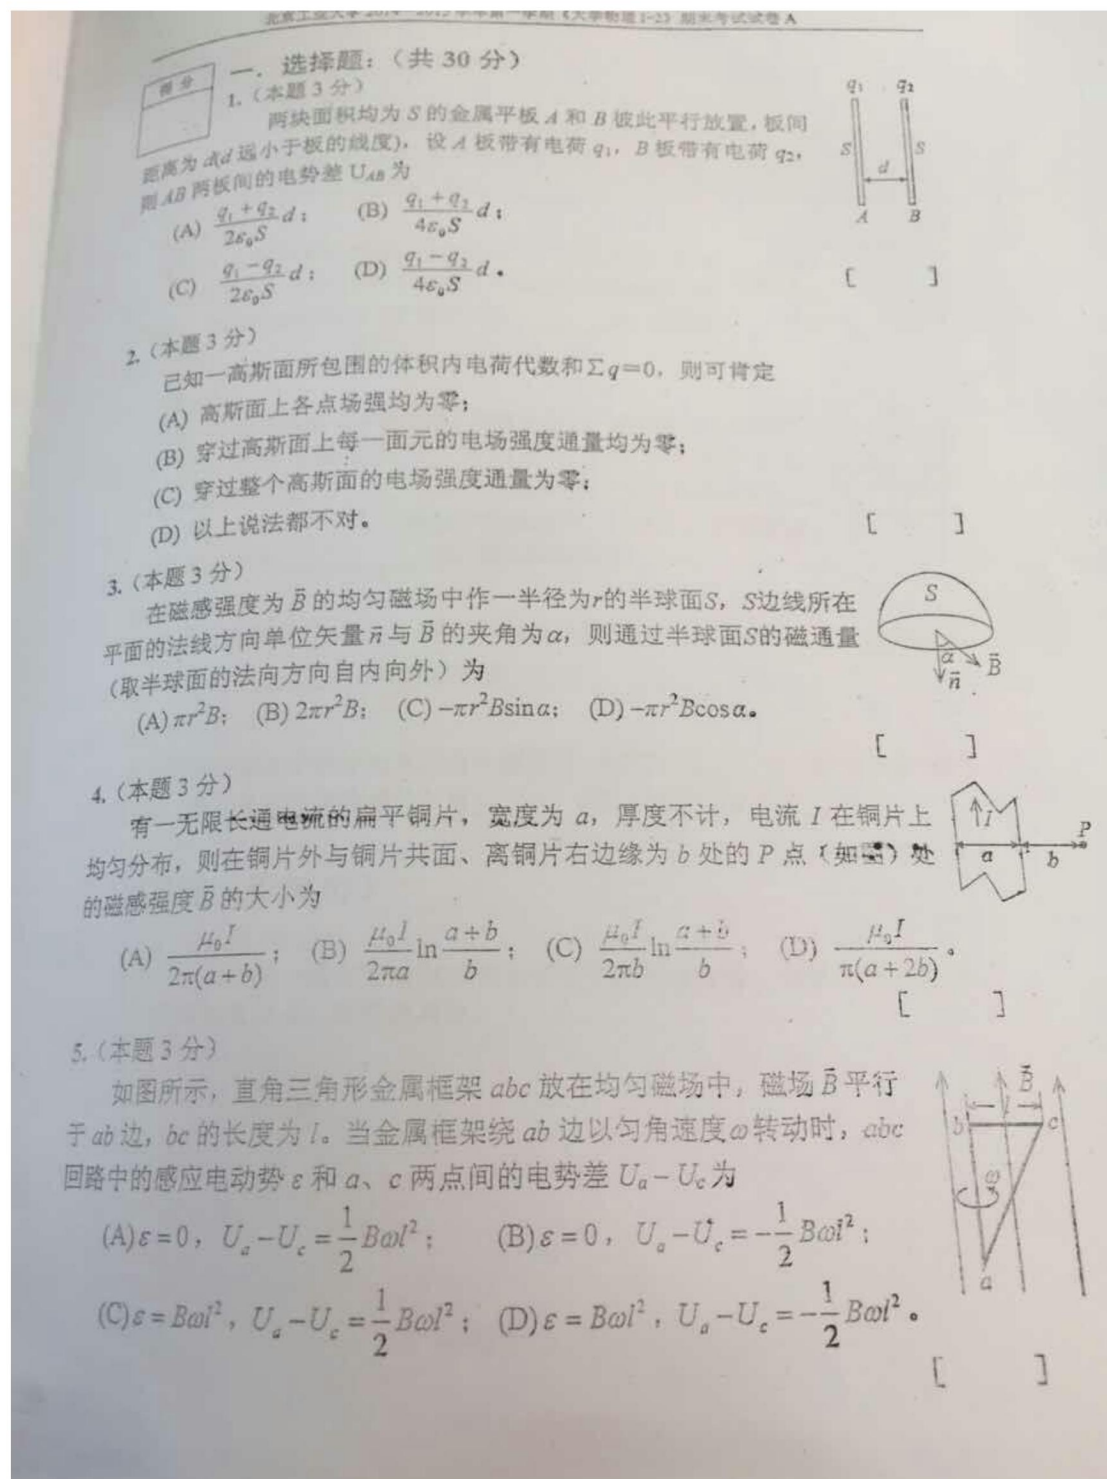 北京工业大学2014—2015学年第一学期《大学物理I-2》期末考试试卷A
得分
一. 选择题:(共 30 分)
1.(本题 3 分)
两块面积均为 S 的金属平板 A 和 B 彼此平行放置,板间
距离为 d(d 远小于板的线度),设 A 板带有电荷 q₁,B 板带有电荷 q₂,
则 AB 两板间的电势差 U_AB 为
(A) \frac{q₁+q₂}{2ε₀S}d; (B) \frac{q₁+q₂}{4ε₀S}d;
(C) \frac{q₁-q₂}{2ε₀S}d; (D) \frac{q₁-q₂}{4ε₀S}d。
[ ]
q₁ q₂
S S
d
A B
2.(本题 3 分)
已知一高斯面所包围的体积内电荷代数和∑q=0,则可肯定
(A) 高斯面上各点场强均为零;
(B) 穿过高斯面上每一面元的电场强度通量均为零;
(C) 穿过整个高斯面的电场强度通量为零;
(D) 以上说法都不对。
[ ]
3.(本题 3 分)
在磁感强度为 B⃗ 的均匀磁场中作一半径为r的半球面S,S边线所在
平面的法线方向单位矢量 n⃗ 与 B⃗ 的夹角为α,则通过半球面S的磁通量
(取半球面的法向方向自内向外)为
(A) πr²B; (B) 2πr²B; (C) -πr²Bsinα; (D) -πr²Bcosα。
[ ]
S
α
B⃗
n⃗
4.(本题 3 分)
有一无限长通电流的扁平铜片,宽度为 a,厚度不计,电流 I 在铜片上
均匀分布,则在铜片外与铜片共面、离铜片右边缘为 b 处的 P 点(如图)处
的磁感强度 B⃗ 的大小为
(A) \frac{μ₀I}{2π(a+b)}; (B) \frac{μ₀I}{2πa}ln\frac{a+b}{b}; (C) \frac{μ₀I}{2πb}ln\frac{a+b}{b}; (D) \frac{μ₀I}{π(a+2b)}。
[ ]
I
P
a b
5.(本题 3 分)
如图所示,直角三角形金属框架 abc 放在均匀磁场中,磁场 B⃗ 平行
于 ab 边,bc 的长度为 l。当金属框架绕 ab 边以匀角速度ω转动时,abc
回路中的感应电动势 ε 和 a、c 两点间的电势差 U_a-U_c 为
(A) ε=0,U_a-U_c=\frac{1}{2}Bωl²; (B) ε=0,U_a-U_c=-\frac{1}{2}Bωl²;
(C) ε=Bωl²,U_a-U_c=\frac{1}{2}Bωl²; (D) ε=Bωl²,U_a-U_c=-\frac{1}{2}Bωl²。
[ ]
B⃗
l
b c
ω
a